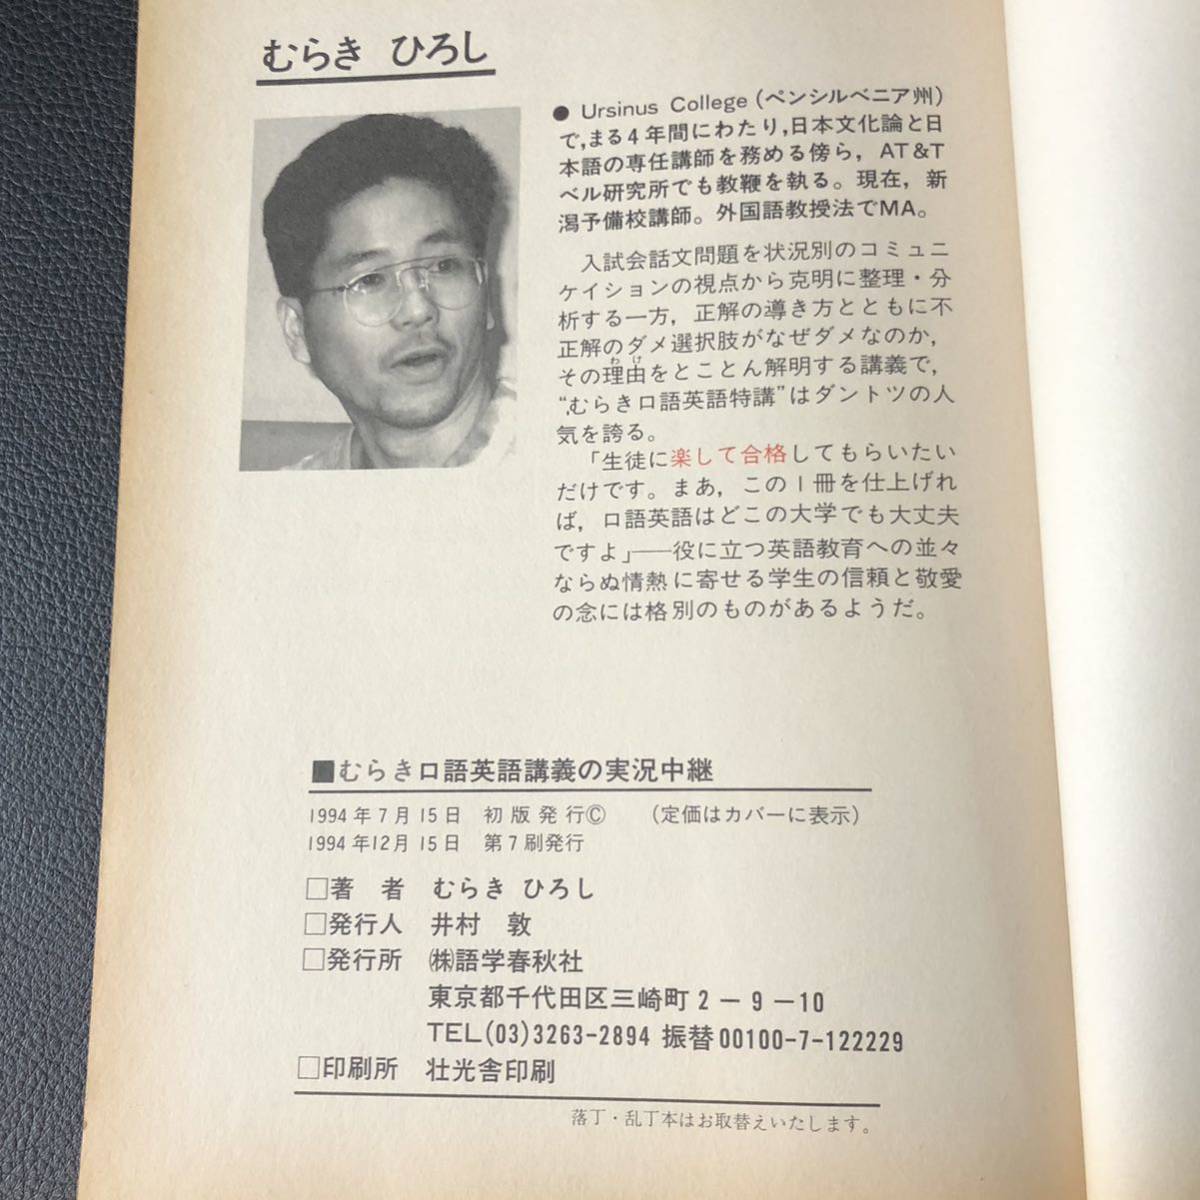 むらき ひろし
● Ursinus College(ペンシルベニア州)
で,まる4年間にわたり,日本文化論と日
本語の専任講師を務める傍ら,AT&T
ベル研究所でも教鞭を執る。現在,新
潟予備校講師。外国語教授法でMA。
入試会話文問題を状況別のコミュニ
ケイションの視点から克明に整理・分
析する一方,正解の導き方とともに不
正解のダメ選択肢がなぜダメなのか,
わけ
その理由をとことん解明する講義で,
“むらき口語英語特講”はダントツの人
気を誇る。
「生徒に楽して合格してもらいたい
だけです。まあ,この1冊を仕上げれ
ば,口語英語はどこの大学でも大丈夫
ですよ」──役に立つ英語教育への並々
ならぬ情熱に寄せる学生の信頼と敬愛
の念には格別のものがあるようだ。
■むらき口語英語講義の実況中継
1994年7月15日 初版発行© (定価はカバーに表示)
1994年12月15日 第7刷発行
□著 者 むらき ひろし
□発行人 井村 敦
□発行所 ㈱語学春秋社
東京都千代田区三崎町2-9-10
TEL(03)3263-2894 振替00100-7-122229
□印刷所 壮光舎印刷
落丁・乱丁本はお取替えいたします。